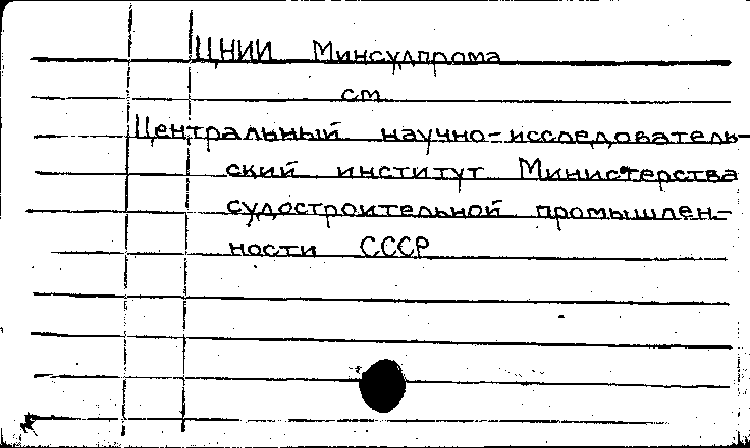 ЦНИИ Минсудпрома
см.
Центральный научно-исследователь-
ский институт Министерства
судостроительной промышлен-
ности СССР